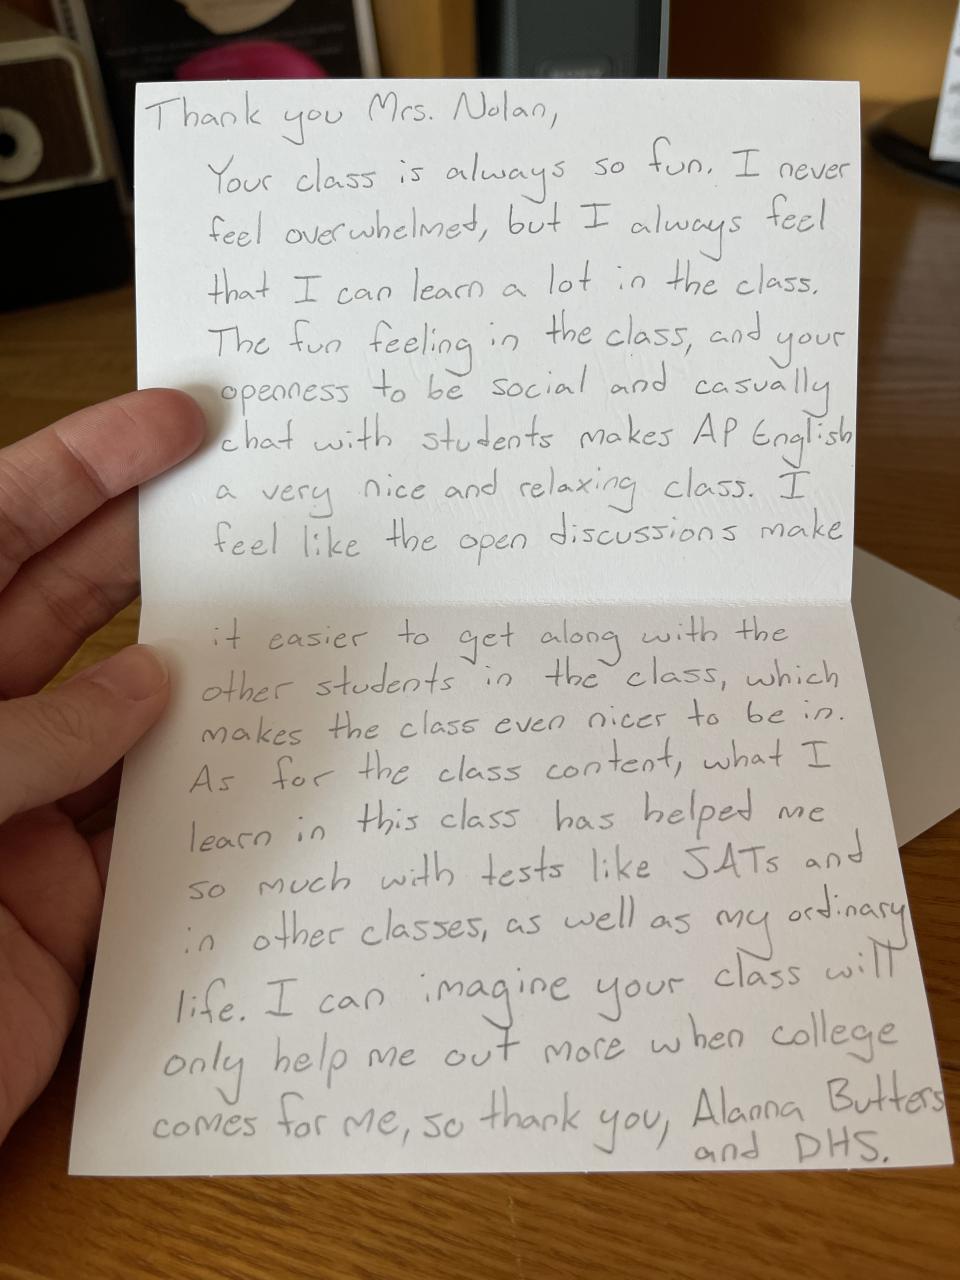 Thank you Mrs. Nolan,
Your class is always so fun. I never
feel overwhelmed, but I always feel
that I can learn a lot in the class.
The fun feeling in the class, and your
openness to be social and casually
chat with students makes AP English
a very nice and relaxing class. I
feel like the open discussions make
it easier to get along with the
other students in the class, which
makes the class even nicer to be in.
As for the class content, what I
learn in this class has helped me
so much with tests like SATs and
in other classes, as well as my ordinary
life. I can imagine your class will
only help me out more when college
comes for me, so thank you, Alanna Butters
and DHS.